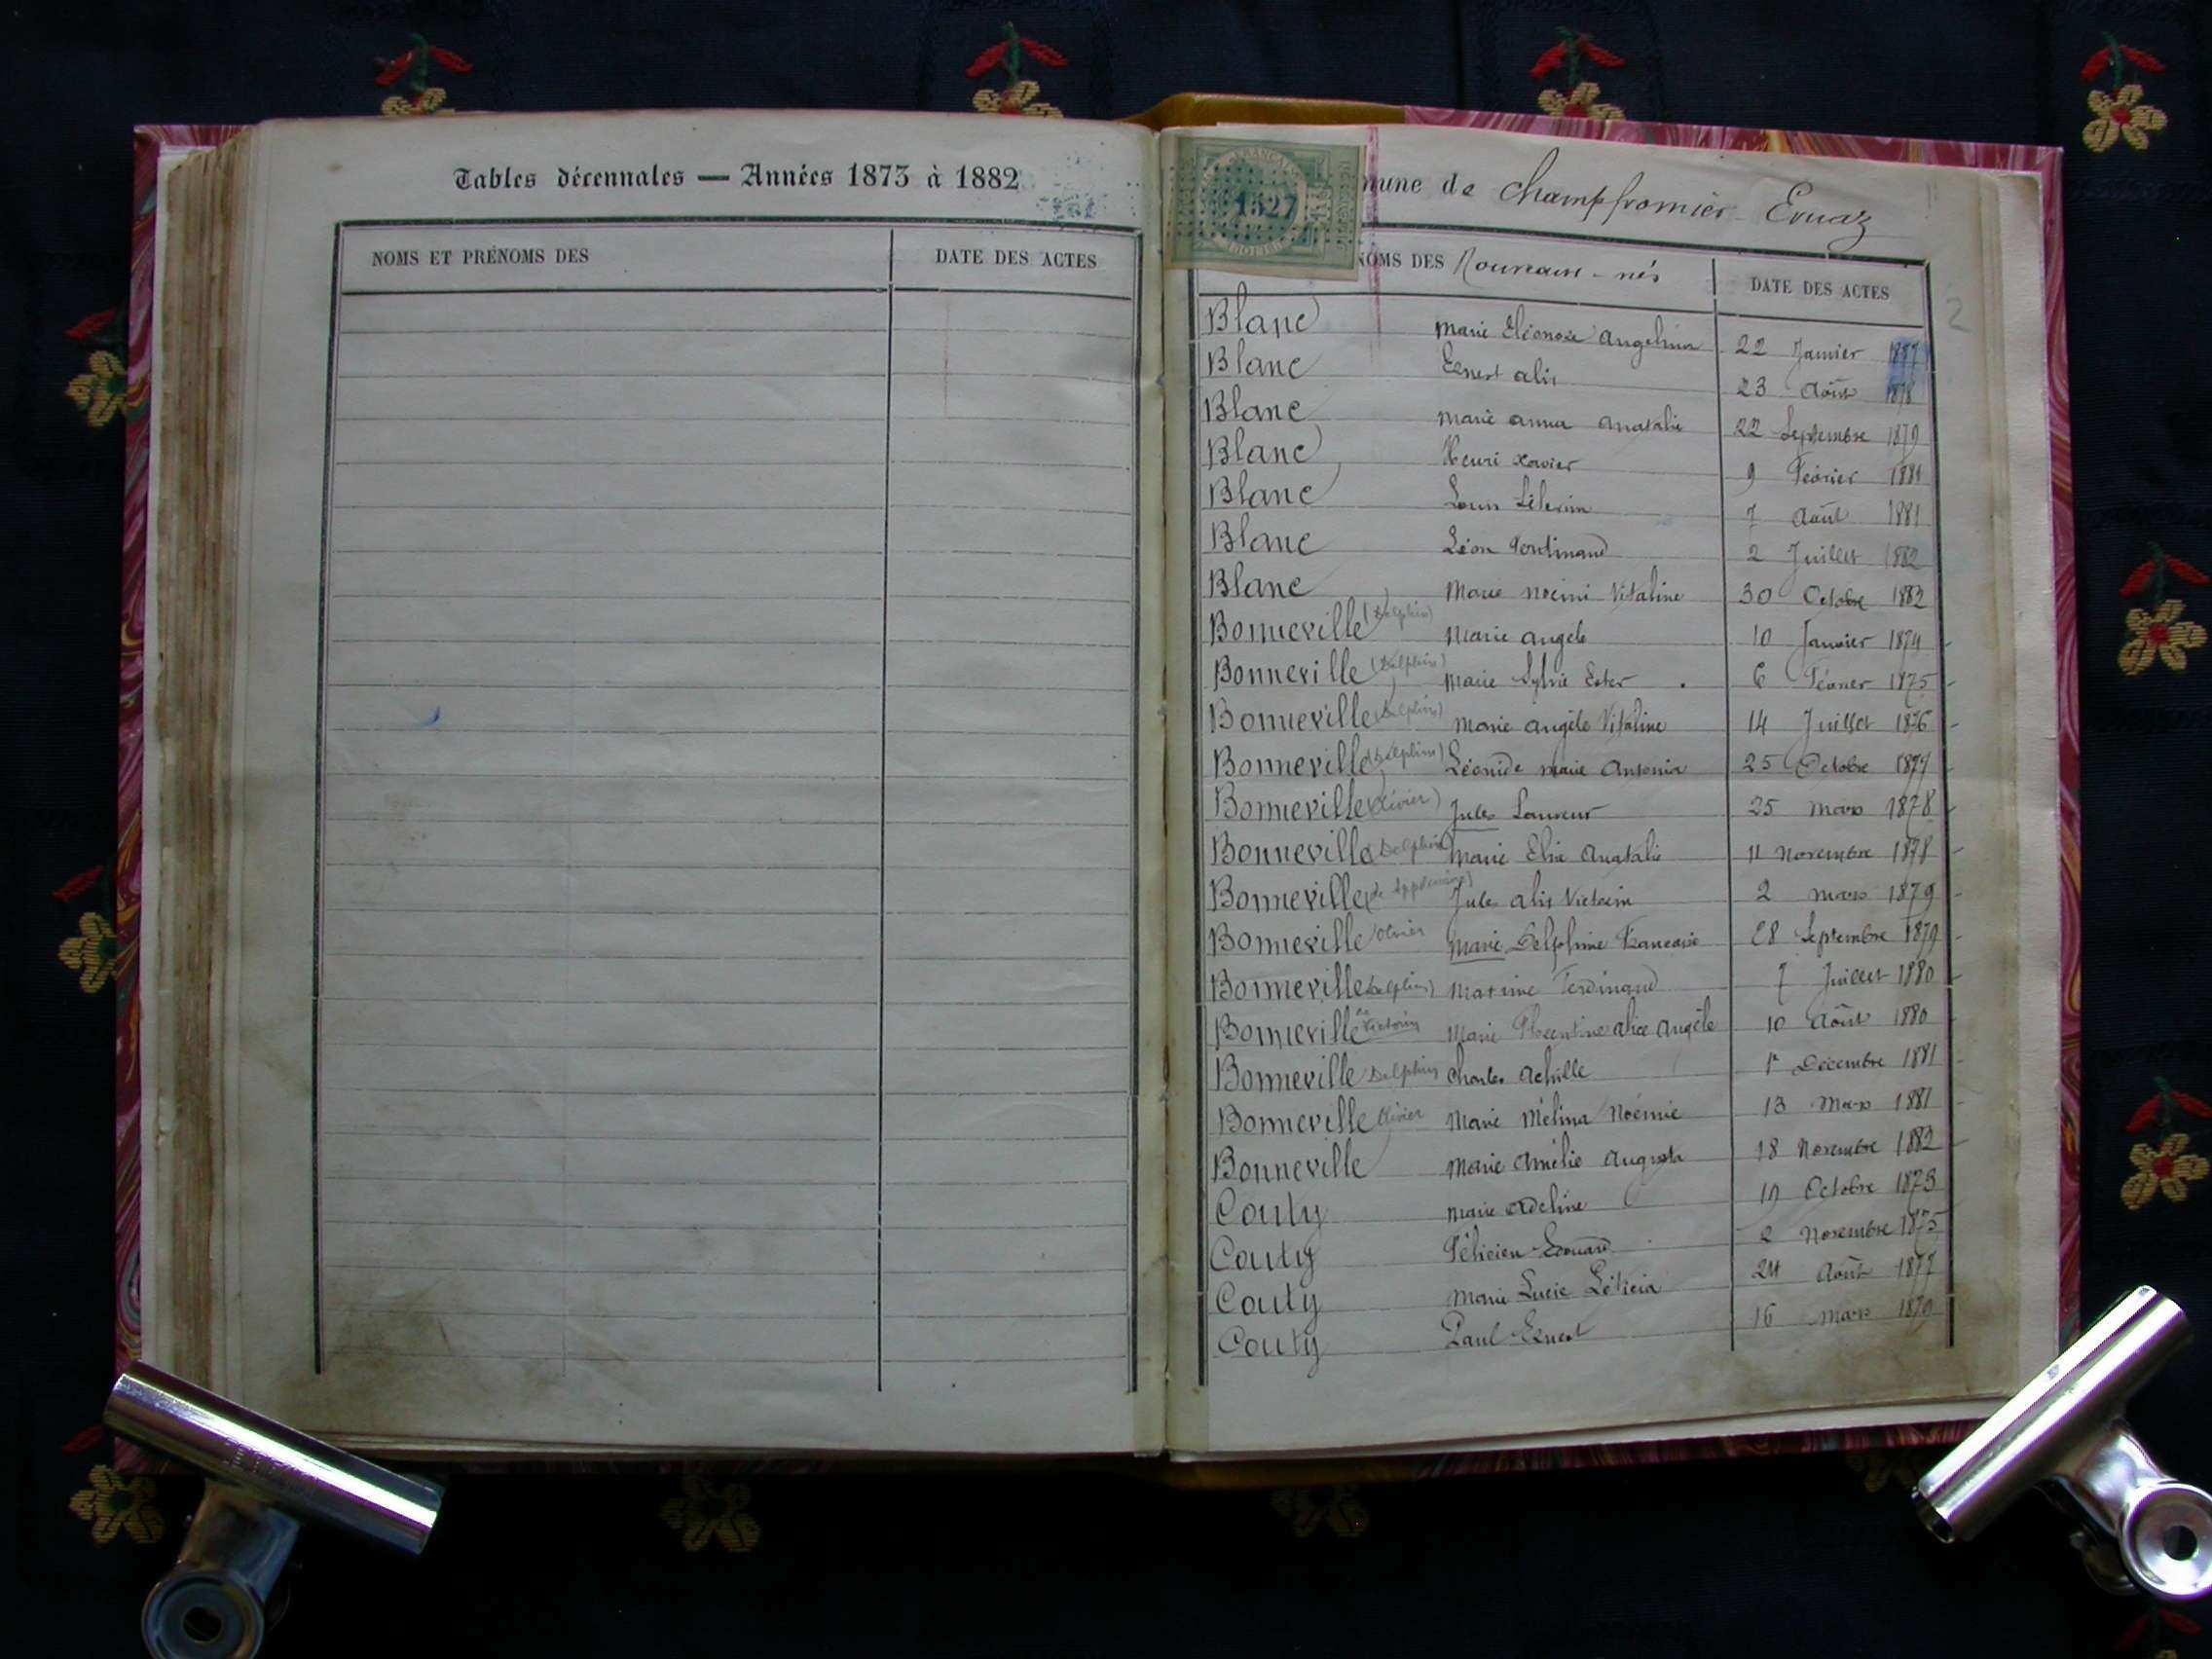 Tables décennales — Années 1873 à 1882
NOMS ET PRÉNOMS DES DATE DES ACTES
1527
mune de Champfromier Evuaz
NOMS DES Nouveaux-nés DATE DES ACTES
2
Blanc Marie Eléonore Angelina 22 Janvier
Blanc Ernest alix 23 Août 1878
Blanc Marie anna anatalie 22 Septembre 1879
Blanc Henri xavier 9 Février 1881
Blanc Louis 7 Août 1881
Blanc Léon Ferdinand 2 Juillet 1882
Blanc Marie noémi Vitaline 30 Octobre 1882
Bonneville (Delphin) Marie angèle 10 Janvier 1874
Bonneville (Delphin) Marie Sylvie Ester 6 Février 1875
Bonneville (Delphin) Marie angèle Vitaline 14 Juillet 1876
Bonneville (Delphin) Léonide marie Antonia 25 Octobre 1877
Bonneville (Olivier) Jules 25 Mars 1878
Bonneville (Delphin) Marie Elise Anatalie 11 Novembre 1878
Bonneville Jules alix Victorin 2 Mars 1879
Bonneville Olivier Marie Delphine Francoise 28 Septembre 1879
Bonneville Delphin) Maxime Ferdinand 7 Juillet 1880
Bonneville de Victorin Marie Florentine alice angèle 10 Août 1880
Bonneville Delphin Charles Achille 1r Décembre 1881
Bonneville Olivier Marie Mélina Noémie 13 Mars 1881
Bonneville Marie Amélie Augusta 18 Novembre 1882
Couty Marie Adeline 19 Octobre 1873
Couty Félicien Edouard 2 Novembre 1875
Couty Marie Lucie Léticia 24 Août 1877
Couty Paul Ernest 16 Mars 1879